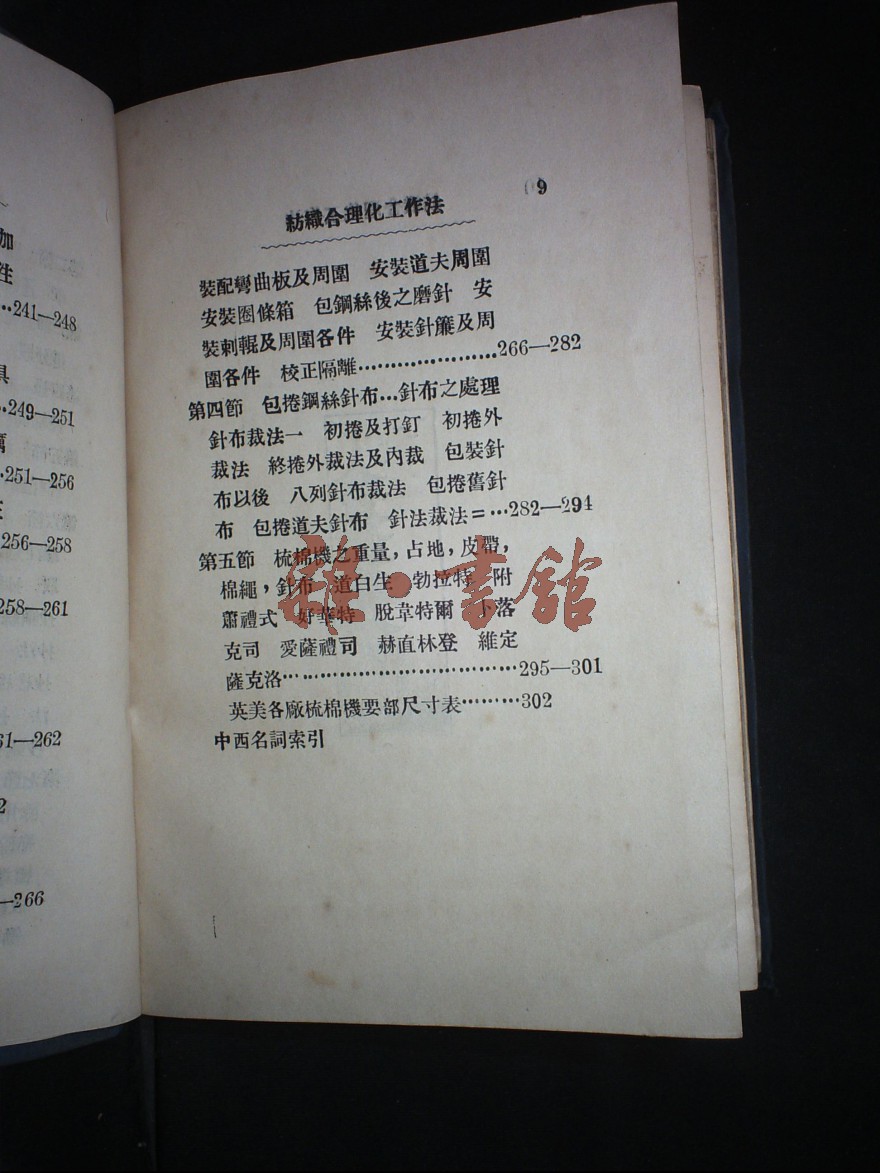 加
性
…241—248
具
…249—251
…251—256
256—258
258—261
61—262
2
—266
紡織合理化工作法 9
裝配彎曲板及周圍 安裝道夫周圍
安裝圈條箱 包鋼絲後之磨針 安
裝刺輥及周圍各件 安裝針簾及周
圍各件 校正隔離…………………266—282
第四節 包捲鋼絲針布…針布之處理
針布裁法一 初捲及打釘 初捲外
裁法 終捲外裁法及內裁 包裝針
布以後 八列針布裁法 包捲舊針
布 包捲道夫針布 針法裁法=…282—294
第五節 梳棉機之重量,占地,皮帶,
棉繩,針布一道白生 勃拉特 附
蕭禮式 好華特 脫韋特爾 卜落
克司 愛薩禮司 赫直林登 維定
薩克洛………………………………295—301
英美各廠梳棉機要部尺寸表………302
中西名詞索引
雜·書館